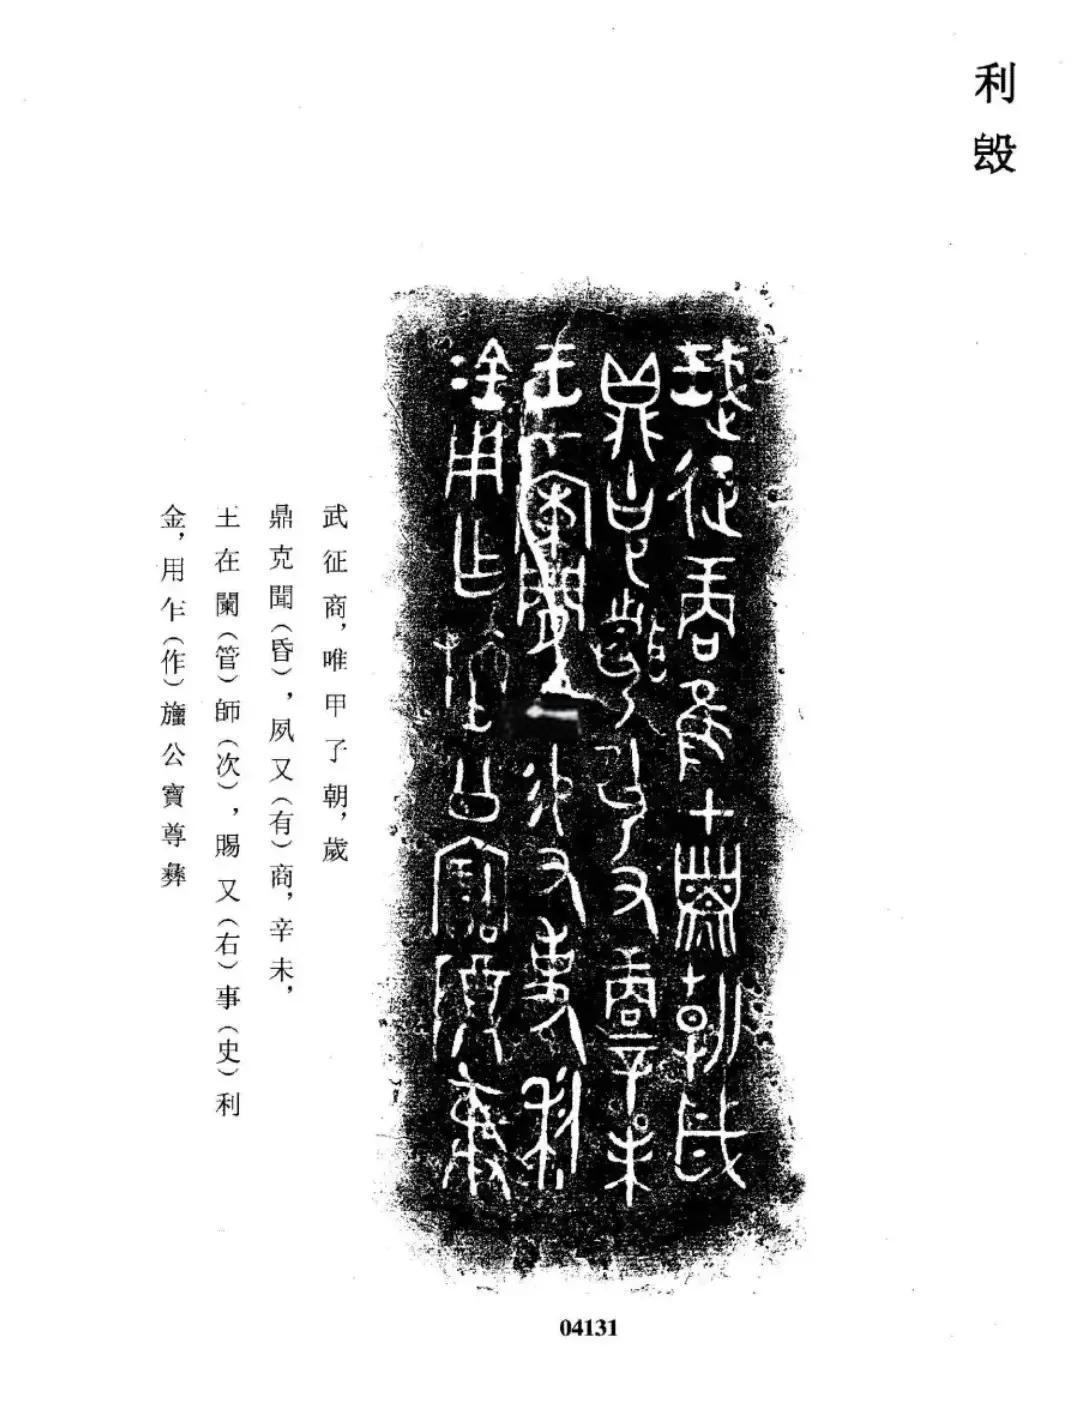 利
𣪘
武征商，唯甲子朝，歲
鼎克聞（昏），夙又（有）商，辛未，
王在闌（管）師（次），賜又（右）事（史）利
金，用乍（作）旜公寶尊彝
04131